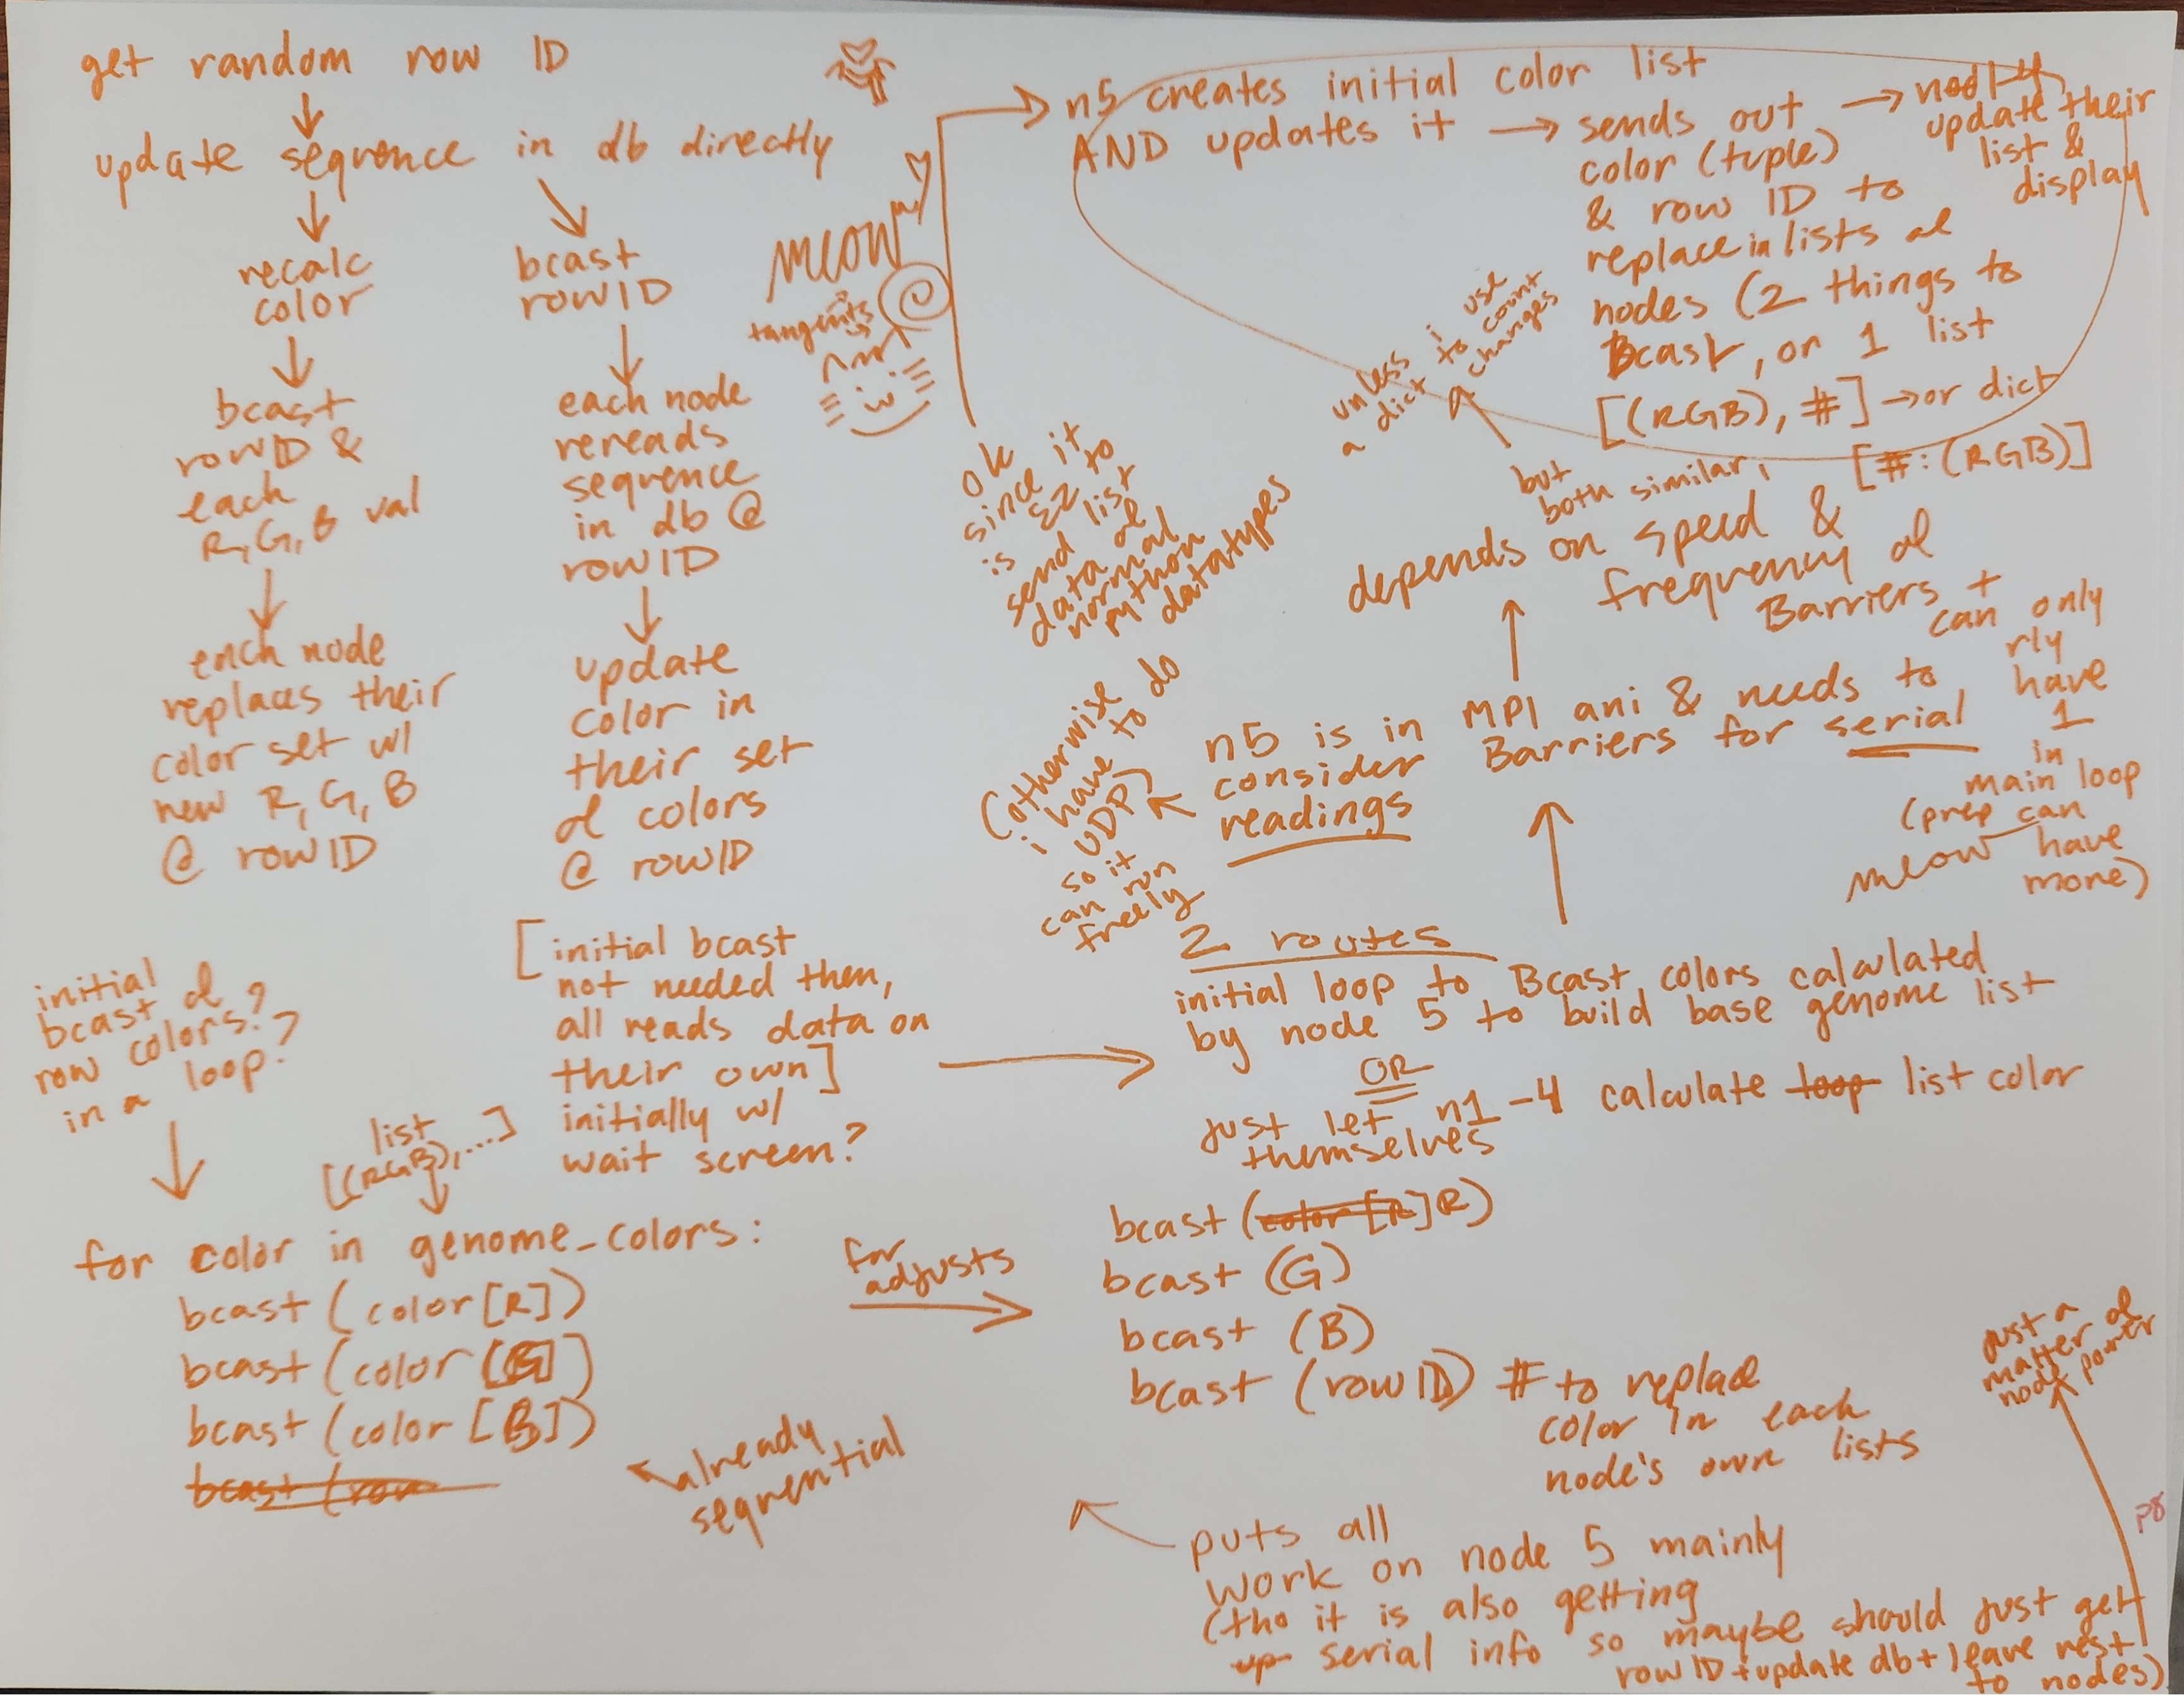 get random row ID
update sequence in db directly
recalc
color
bcast
rowID &
each
R, G, B val
each node
replaces their
color set w/
new R, G, B
@ rowID
bcast
rowID
each node
rereads
sequence
in db @
rowID
update
color in
their set
of colors
@ rowID
meow
tangents
[initial bcast
not needed then,
all reads data on
their own]
initially w/
wait screen?
initial
bcast of
row colors?
in a loop?
list
[(RGB), ...]
for color in genome_colors:
bcast (color [R])
bcast (color [G])
bcast (color [B])
bcast (row
already
sequential
for
adjusts
n5 creates initial color list
AND updates it → sends out
color (tuple)
& row ID to
replace in lists of
nodes (2 things to
Bcast, or 1 list
[(RGB), #] → or dict
[#: (RGB)]
update their
list &
display
unless i use
a dict to count
changes
but
both similar,
depends on speed &
frequency of
Barriers +
can only
rly
have
1
in
main loop
(prep can
have
more)
meow
ok
since it
is ez to
send list
data of
normal
python
datatypes
n5 is in MPI ani & needs to
consider Barriers for serial
readings
(otherwise
i have to do
UDP)
so it
can run
freely
2 routes
initial loop to Bcast colors calculated
by node 5 to build base genome list
OR
just let n1-4 calculate loop list color
themselves
bcast (color [R] R)
bcast (G)
bcast (B)
bcast (rowID) # to replace
color in each
node's own lists
puts all
work on node 5 mainly
(tho it is also getting
up serial info so maybe should just get
rowID + update db + leave rest
to nodes)
just a
matter of
node power